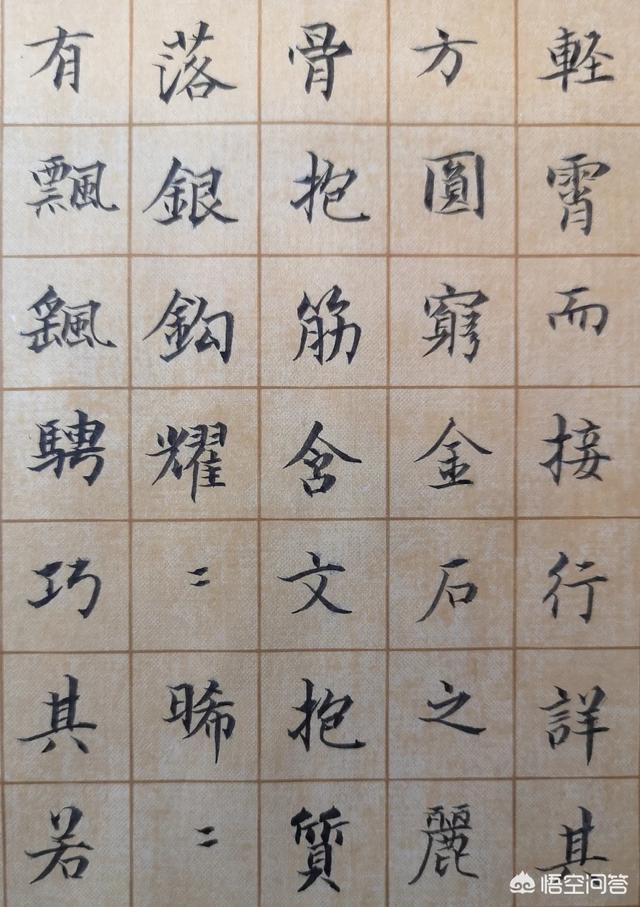 輕霄而接行詳其
方圓窮金石之麗
骨抱筋含文抱質
落銀鈎耀〻晞〻
有飄飖騁巧其若
悟空问答